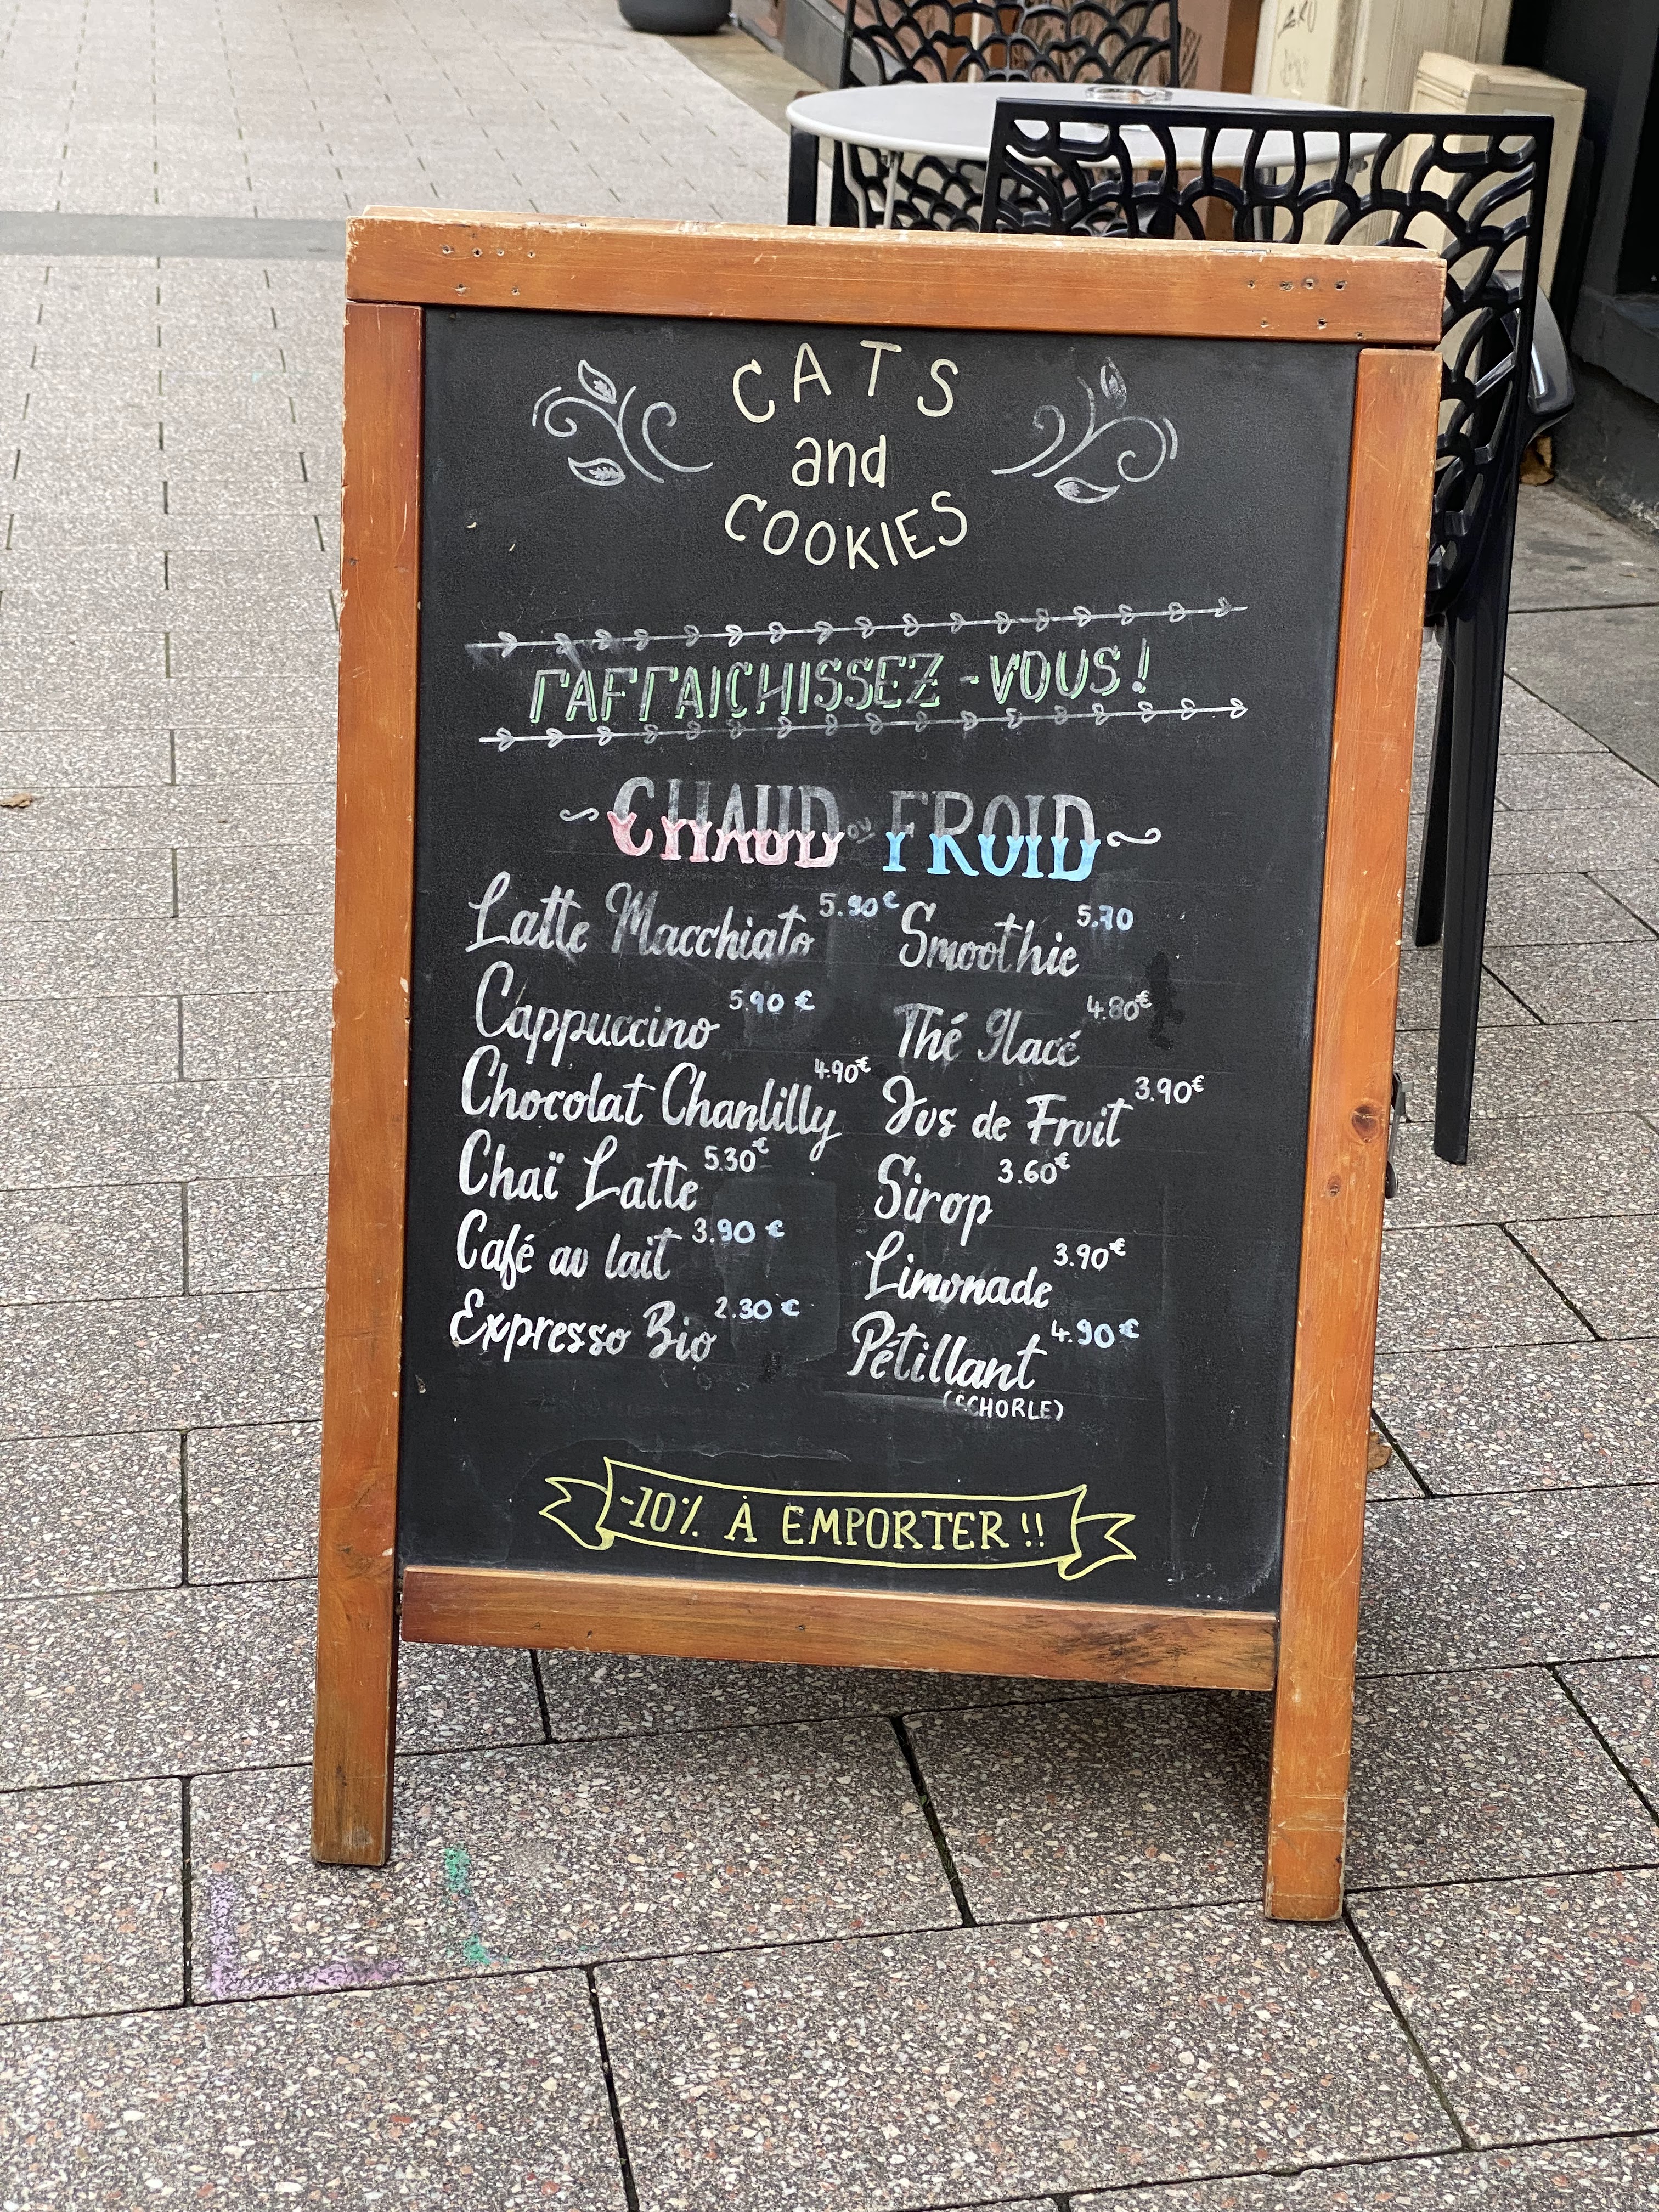 CATS
and
COOKIES
RAFRAICHISSEZ-VOUS!
CHAUD ou FROID
Latte Macchiato 5.90€
Smoothie 5.70
Cappuccino 5.90 €
Thé glacé 4.80€
Chocolat Chantilly 4.90€
Jus de Fruit 3.90€
Chaï Latte 5.30€
Sirop 3.60€
Café au lait 3.90 €
Limonade 3.90€
Expresso Bio 2.30 €
Pétillant 4.90€
(SCHORLE)
-10% À EMPORTER !!